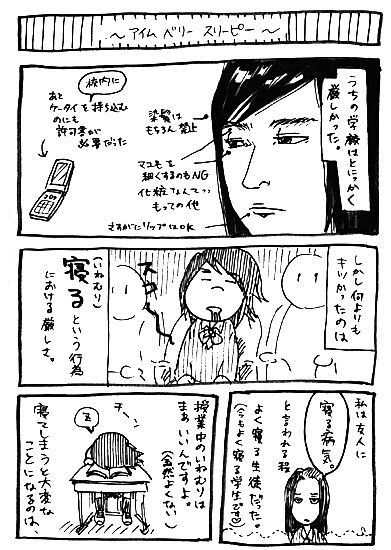 ～アイム ベリー スリーピー～
うちの学校はとにかく
厳しかった。
染髪は
もちろん禁止
マユモを
細くするのもNG
化粧なんてっ
もっての他
さすがにリップはOK
校内に
あと
ケータイを持ち込む
のにも
許可書が
必要だった
しかし何よりも
キツかったのは
スコー
(いねむり)
寝る という行為
における厳しさ。
私は友人に
寝る病気。
と言われる程
よく寝る生徒だった。
(今もよく寝る学生です)
授業中のいねむりは
まぁいいんですよ。
(当然よくない)
チーン
寝てしまうと大変な
ことになるのは、